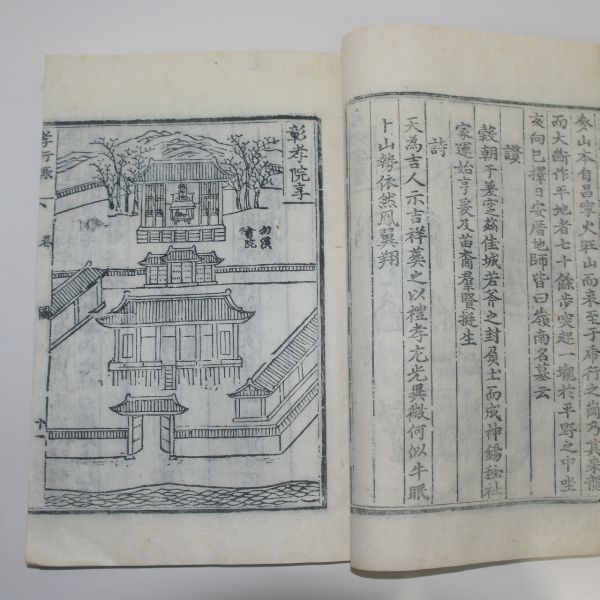 麥山本自昌寧火旺山而來至于席行之崗乃其來龍
而大斷作平地者七十餘步突起一壠於平野之中坐
亥向巳擇日安厝地師皆曰嶺南名墓云
讚
穀朝于墓空玆佳城若斧之封負土而成神錫祉
家運始亨爰及苗裔羣賢挺生
詩
天為吉人示吉祥葬之以禮孝尤光異徵何似牛眠
卜山勢依然鳳翼翔
彰孝院享
書院
孝行錄
圖